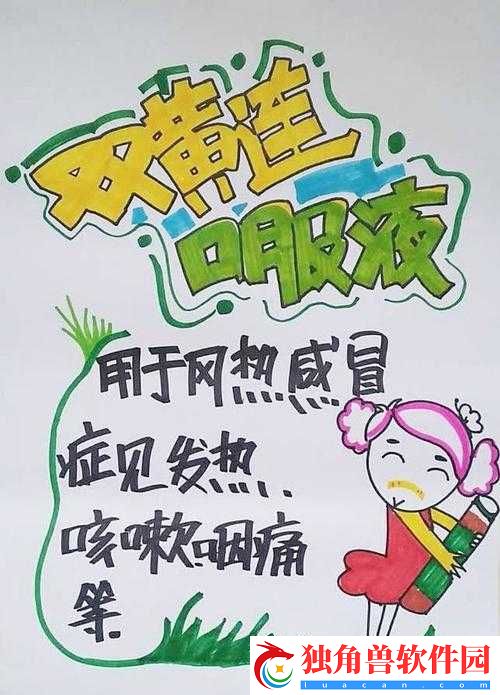 双黄连
口服液
用于风热感冒
症见发热.
咳嗽.咽痛
等.
独角兽软件园
luacan.com